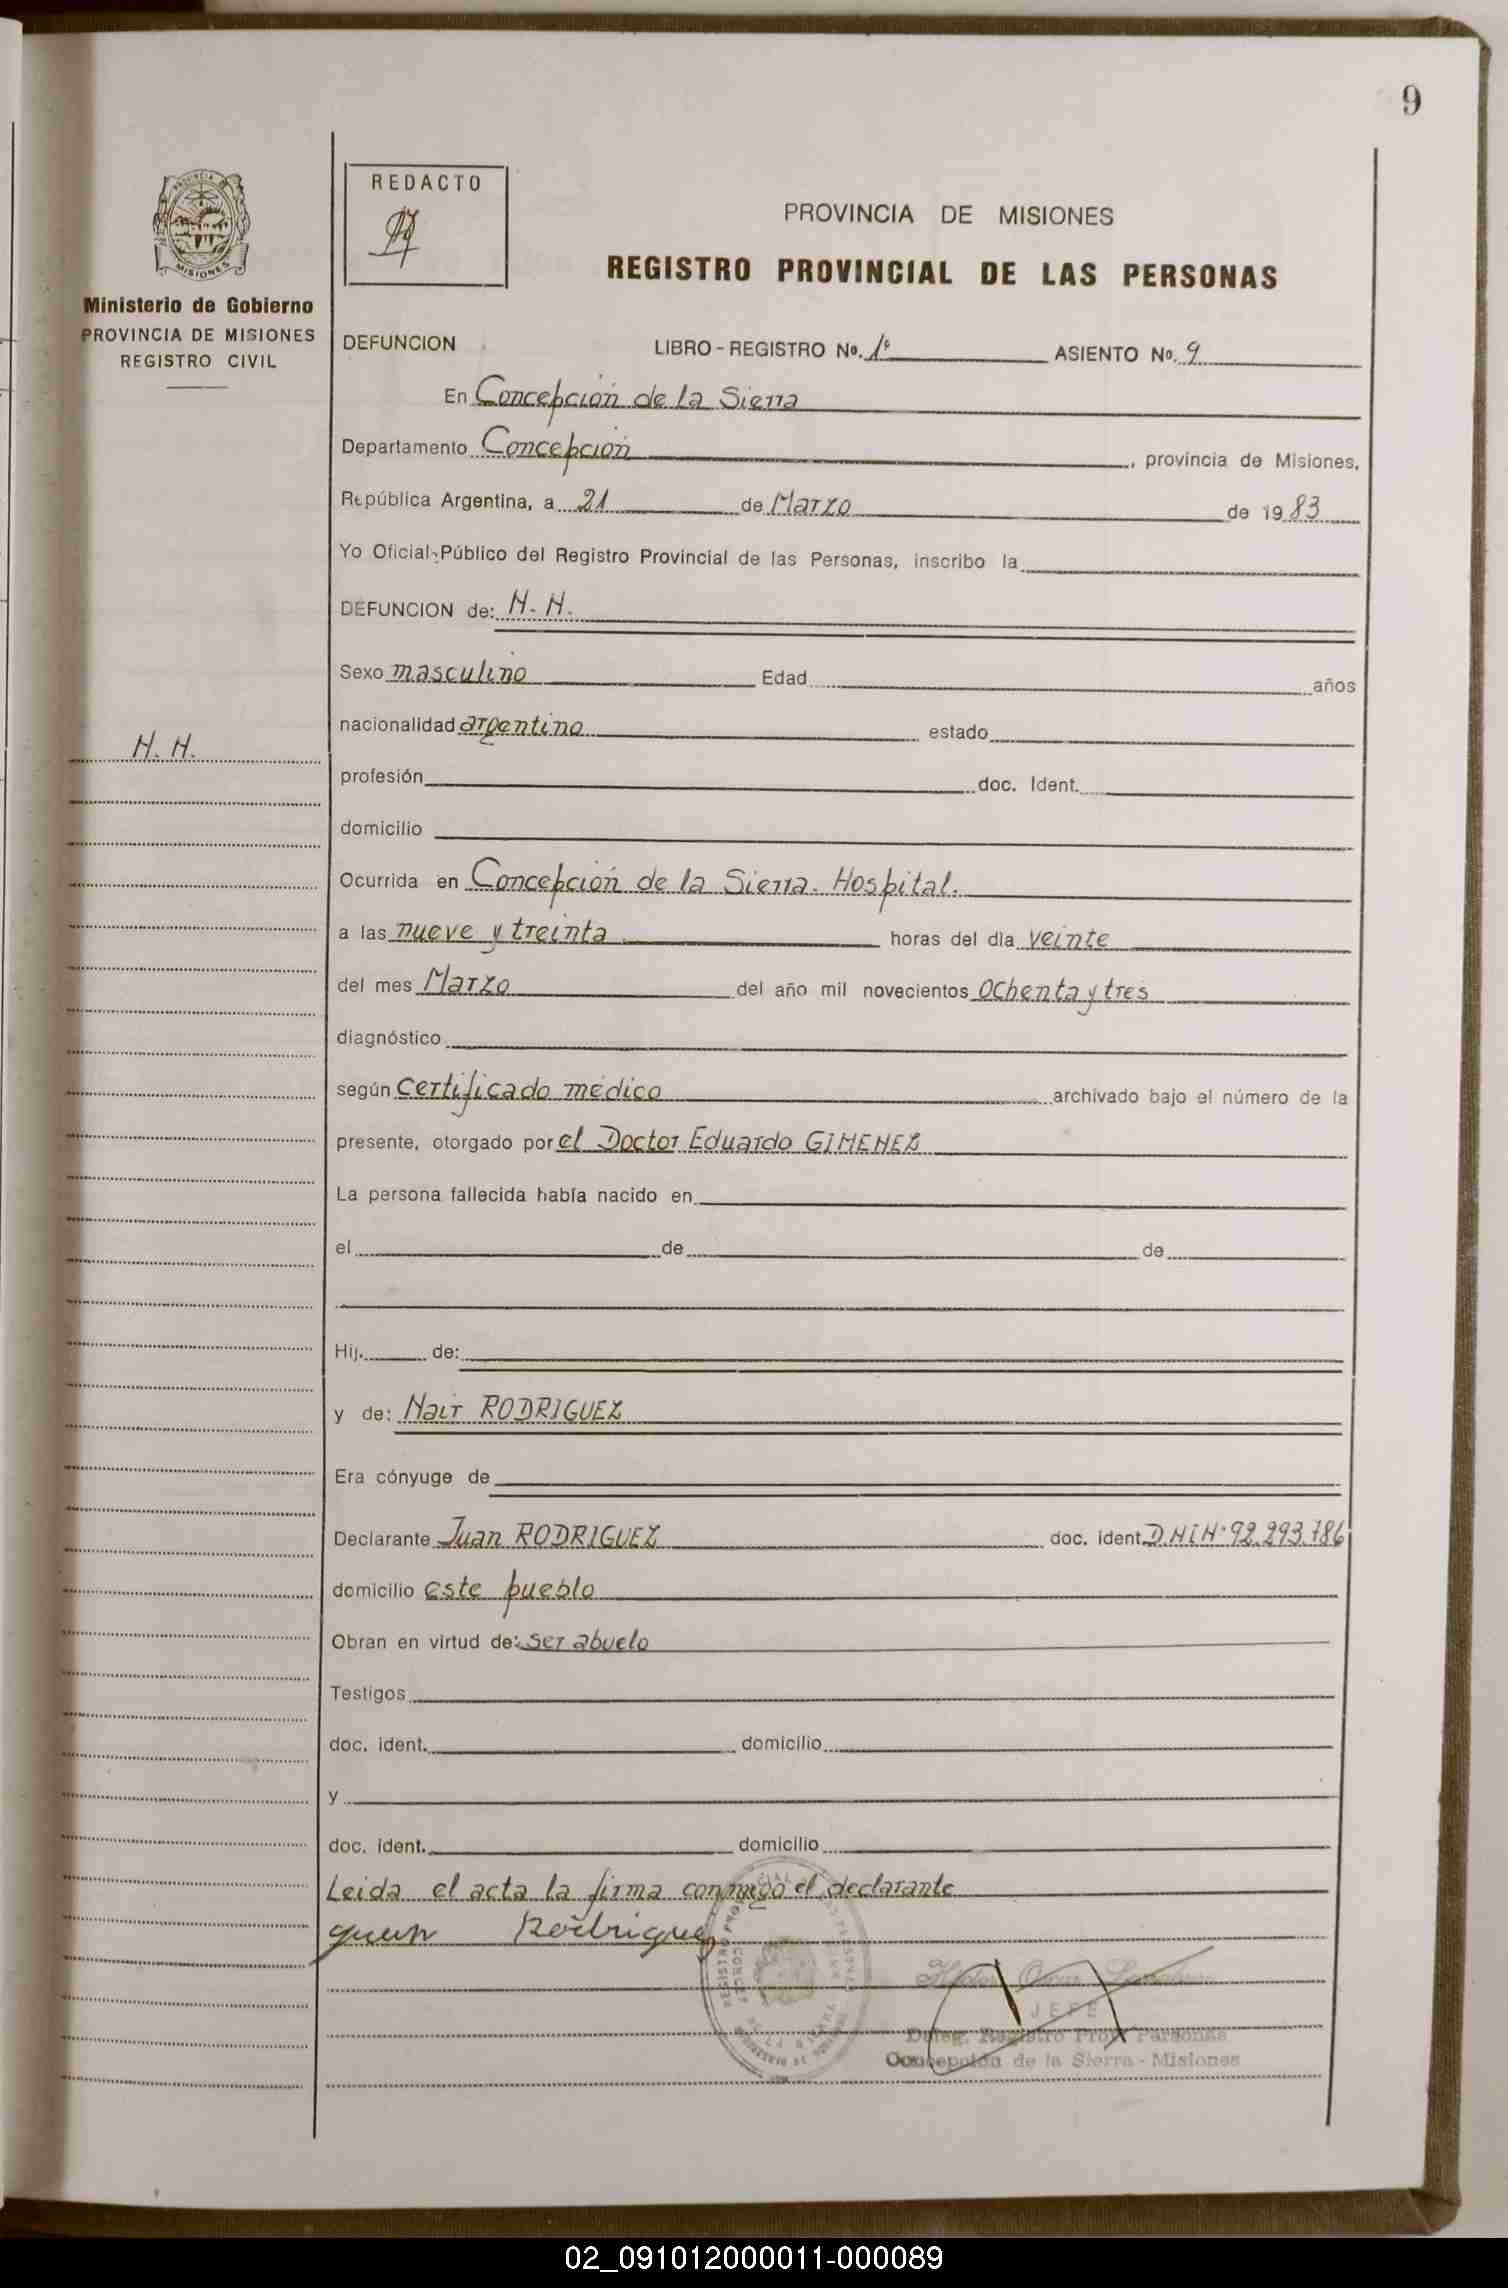 9
PROVINCIA DE MISIONES
Ministerio de Gobierno
PROVINCIA DE MISIONES
REGISTRO CIVIL
N. N.
REDACTO
PROVINCIA DE MISIONES
REGISTRO PROVINCIAL DE LAS PERSONAS
DEFUNCION LIBRO-REGISTRO Nº. 1º ASIENTO Nº. 9
En Concepción de la Sierra
Departamento Concepción, provincia de Misiones,
República Argentina, a 21 de Marzo de 1983
Yo Oficial Público del Registro Provincial de las Personas, inscribo la
DEFUNCION de: N. N.
Sexo masculino Edad años
nacionalidad argentino estado
profesión doc. Ident.
domicilio
Ocurrida en Concepción de la Sierra. Hospital.
a las nueve y treinta horas del día veinte
del mes Marzo del año mil novecientos ochenta y tres
diagnóstico
según certificado médico archivado bajo el número de la
presente, otorgado por el Doctor Eduardo GIMENEZ
La persona fallecida había nacido en
el de de
Hij. de:
y de: Nair RODRIGUEZ
Era cónyuge de
Declarante Juan RODRIGUEZ doc. ident. D.N.I.Nº 92.293.786
domicilio este pueblo
Obran en virtud de: ser abuelo
Testigos
doc. ident. domicilio
y
doc. ident. domicilio
Leida el acta la firma conmigo el declarante
Juan Rodriguez
JEFE
Deleg. Registro Prov. Personas
Concepción de la Sierra - Misiones
02_091012000011-000089